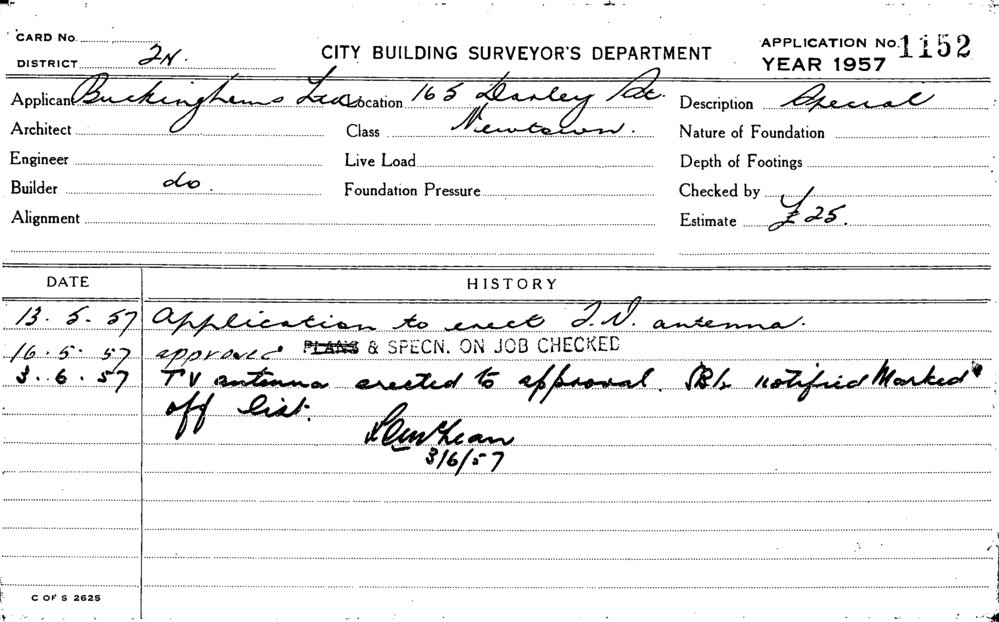 CARD No.
DISTRICT 2N.
CITY BUILDING SURVEYOR'S DEPARTMENT
APPLICATION No. 1152
YEAR 1957
Applicant Buckinghams Ltd Location 165 Darley St. Description Special
Architect Class Newtown. Nature of Foundation
Engineer Live Load Depth of Footings
Builder do. Foundation Pressure Checked by
Alignment Estimate £25.
DATE HISTORY
13.5.57 Application to erect T.V. antenna.
16.5.57 approved PLANS & SPECN. ON JOB CHECKED
3.6.57 TV antenna erected to approval. notified Marked
off list.
3/6/57
C OF S 2625